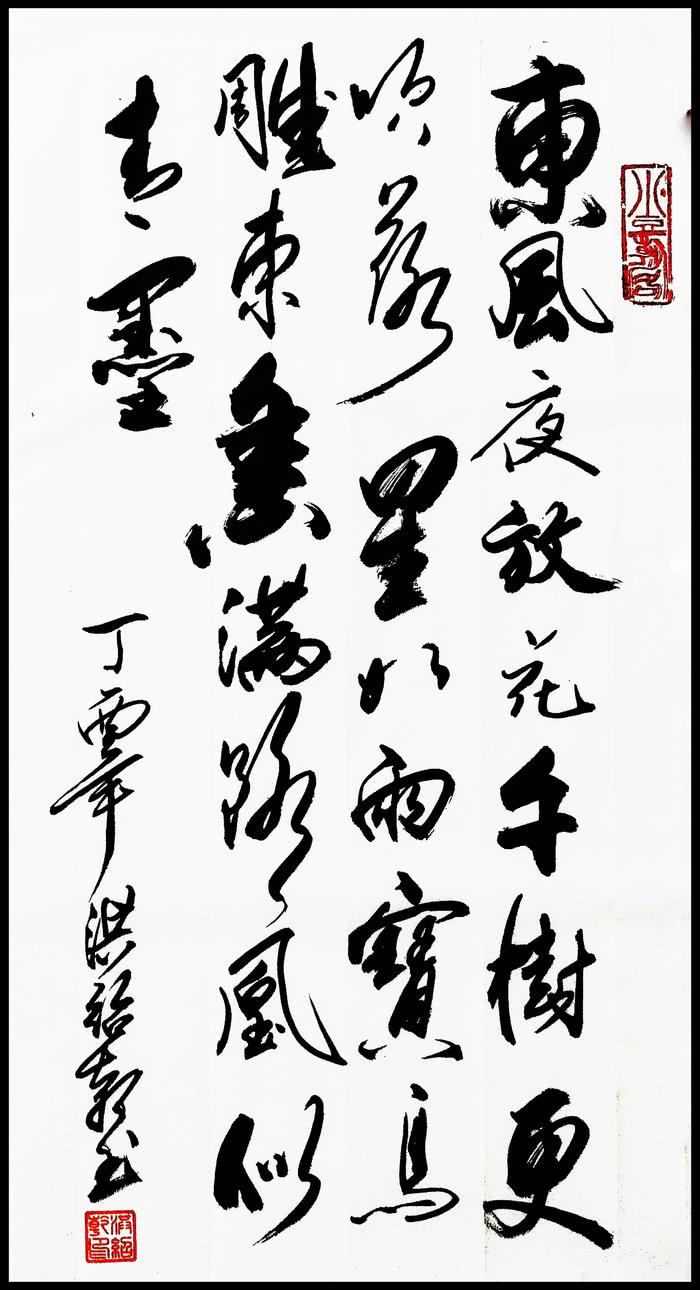 東風夜放花千樹更
吹落星如雨寶馬
雕東香滿路凰似
青墨
丁酉年洪紹乾書